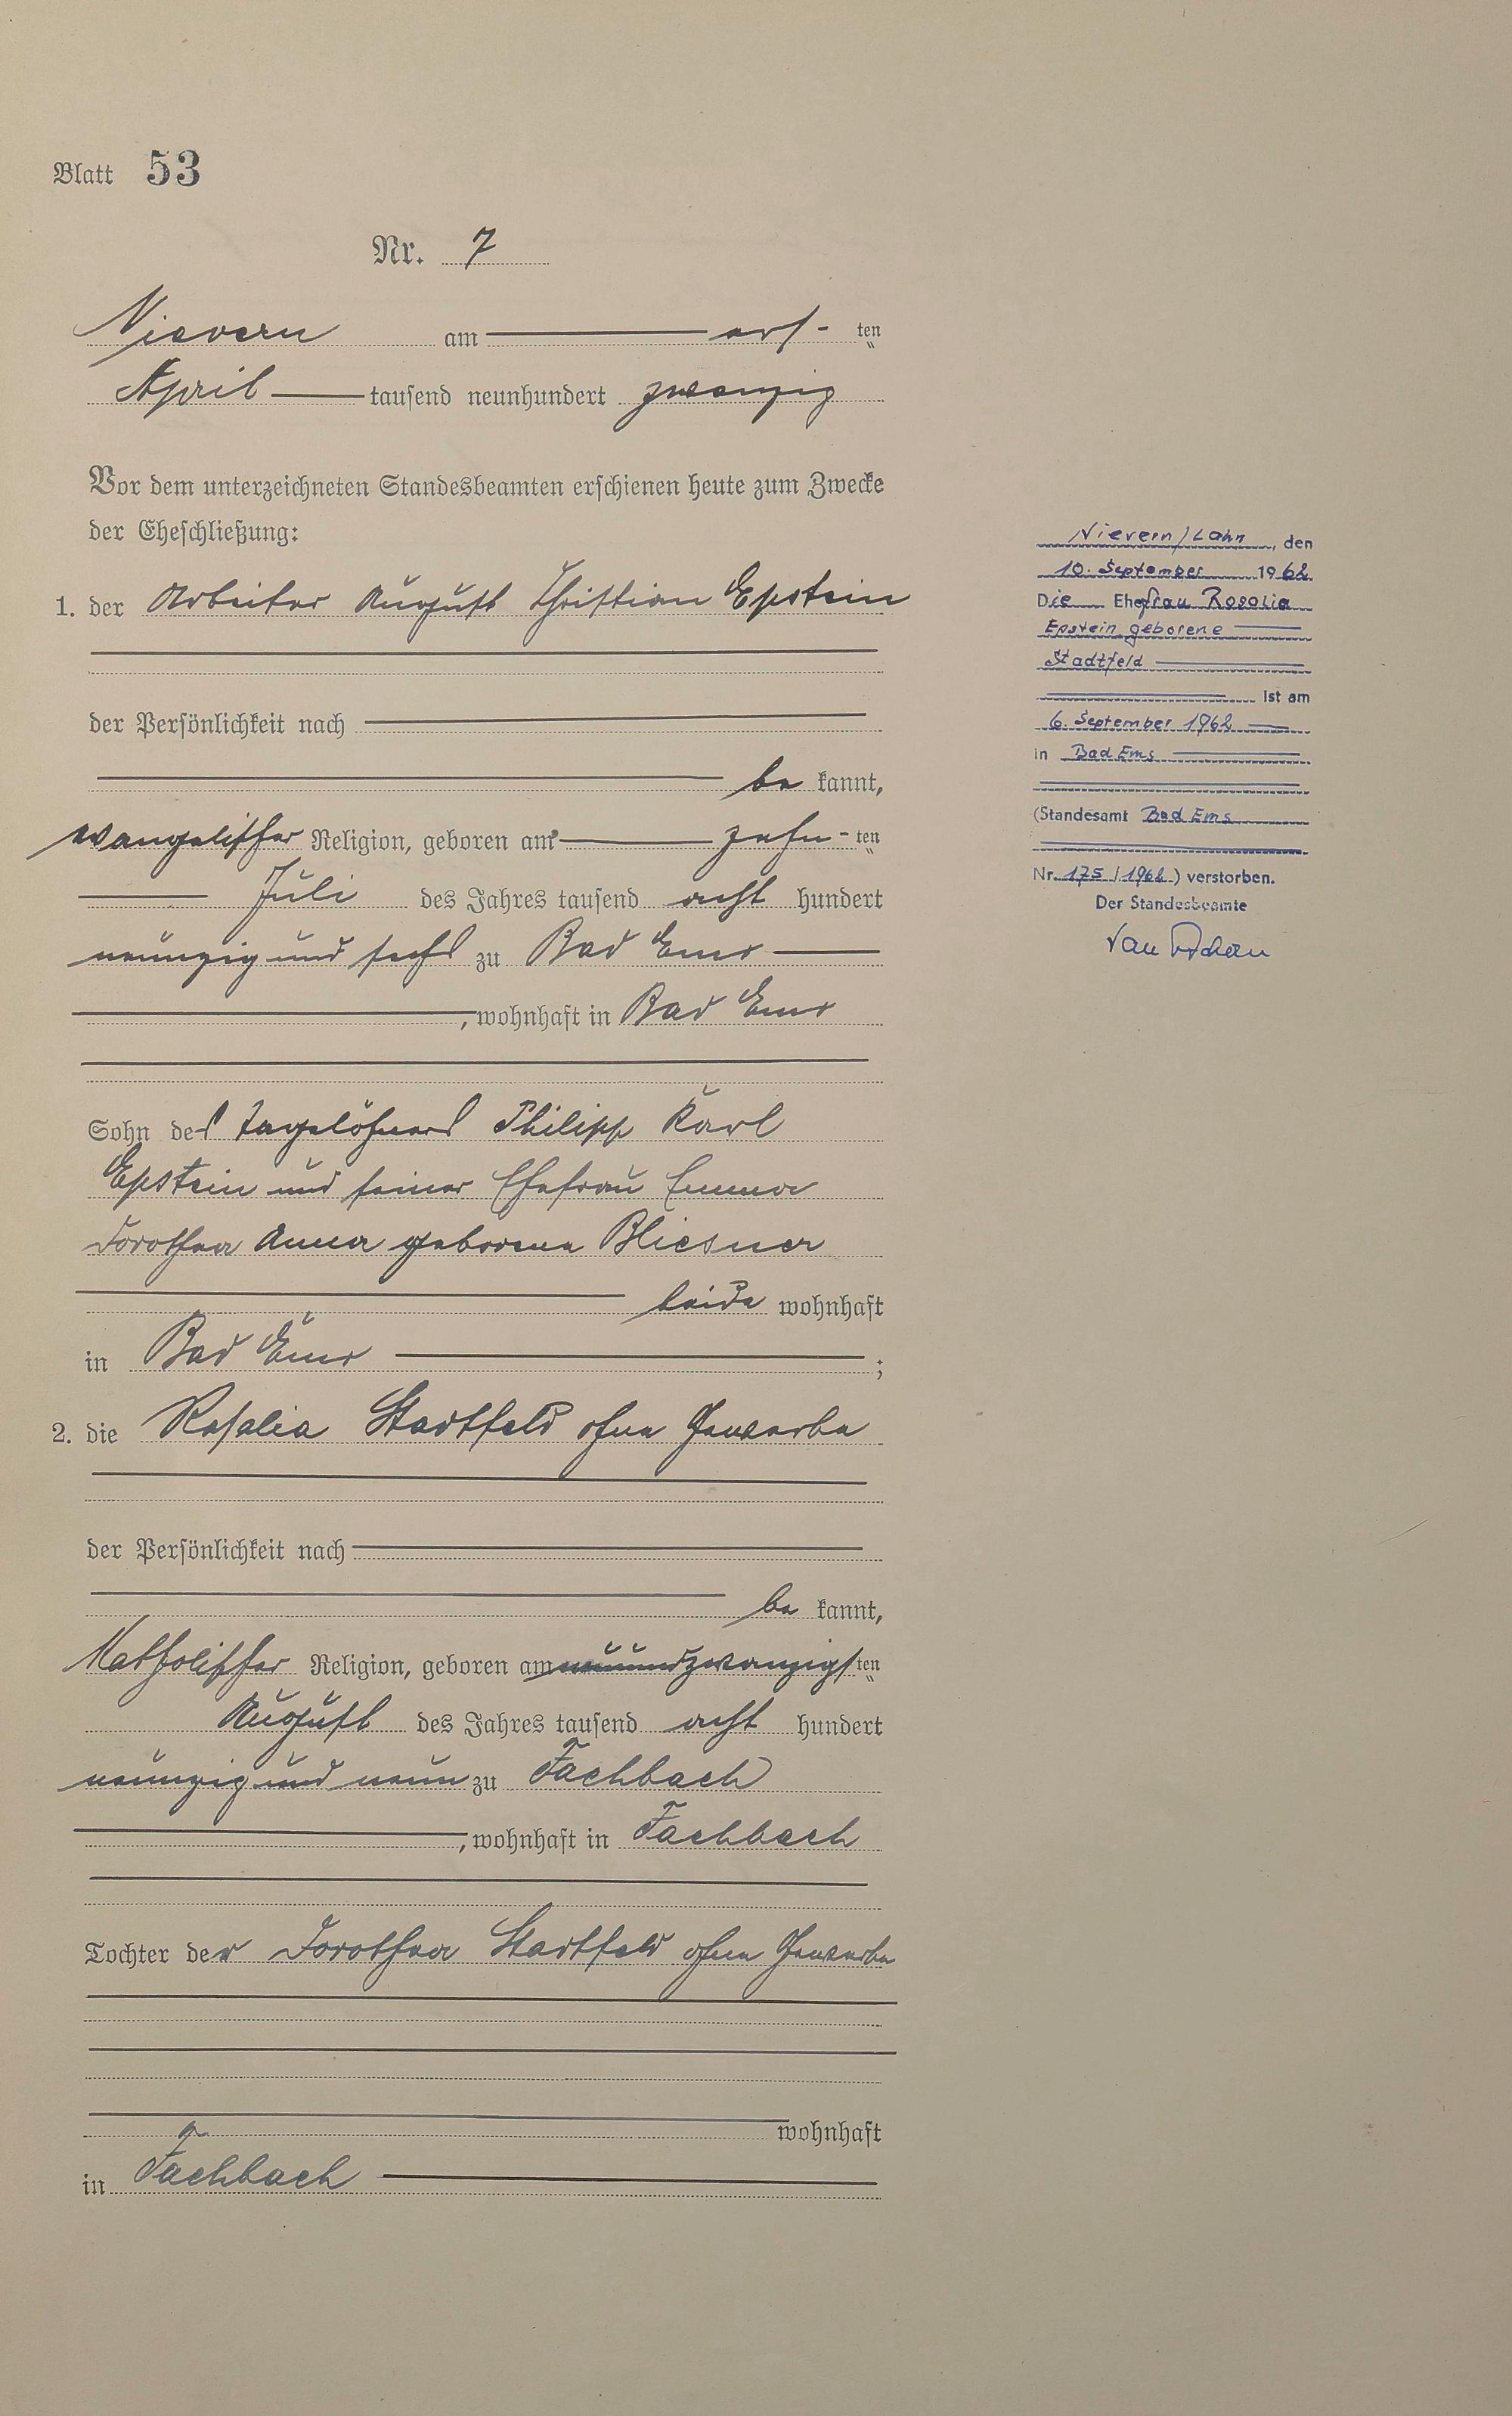 Blatt 53
Nr. 7
Nievern am erſ- ten
April tauſend neunhundert zwanzig
Vor dem unterzeichneten Standesbeamten erſchienen heute zum Zwecke
der Eheſchließung:
1. der Arbeiter Auguſt Chriſtian Epstein
der Perſönlichkeit nach
be kannt,
evangeliſcher Religion, geboren am zehn- ten
Juli des Jahres tauſend acht hundert
neunzig und ſechs zu Bad Ems
, wohnhaft in Bad Ems
Sohn des Tagelöhners Philipp Karl
Epstein und ſeiner Ehefrau Emma
Dorothea Anna geborene Bliesner
beide wohnhaft
in Bad Ems ;
2. die Roſalia Stadtfeld ohne Gewerbe
der Perſönlichkeit nach
be kannt,
Katholiſcher Religion, geboren am neunundzwanzigſ ten
Auguſt des Jahres tauſend acht hundert
neunzig und neun zu Fachbach
, wohnhaft in Fachbach
Tochter der Dorothea Stadtfeld ohne Gewerbe
wohnhaft
in Fachbach
Nievern/Lahn, den
10. September 1962
Die Ehefrau Rosalia
Epstein geborene
Stadtfeld
ist am
6. September 1962
in Bad Ems
(Standesamt Bad Ems
Nr. 175/1962) verstorben.
Der Standesbeamte